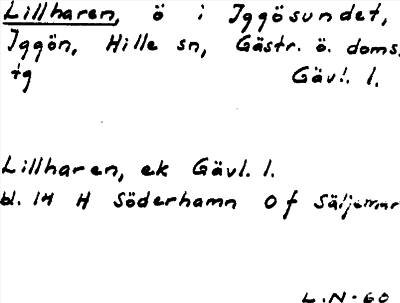 Lillharen, ö i Iggösundet,
Iggön, Hille sn, Gästr. ö. doms.
tg Gävl. l.
Lillharen, ek Gävl. l.
bl. 14 H Söderhamn O f
L.N-60